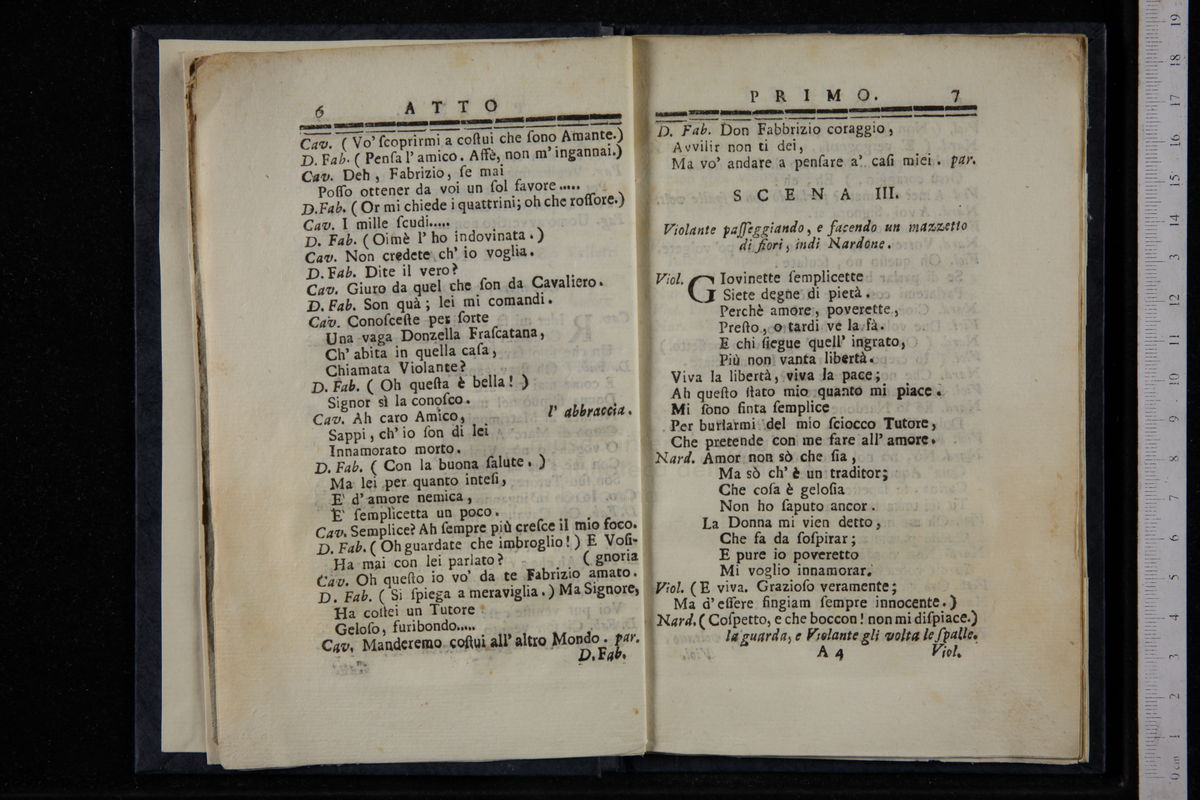 6 ATTO
Cav. ( Vo' ſcoprirmi a coſtui che ſono Amante.)
D. Fab. ( Penſa l' amico. Affè, non m' ingannai.)
Cav. Deh, Fabrizio, ſe mai
Poſſo ottener da voi un ſol favore.....
D.Fab. ( Or mi chiede i quattrini; oh che roſſore.)
Cav. I mille ſcudi.....
D. Fab. ( Oimè l' ho indovinata. )
Cav. Non credete ch' io voglia.
D. Fab. Dite il vero?
Cav. Giuro da quel che ſon da Cavaliero.
D. Fab. Son quà; lei mi comandi.
Cav. Conoſceſte per ſorte
Una vaga Donzella Fraſcatana,
Ch' abita in quella caſa,
Chiamata Violante?
D. Fab. ( Oh queſta è bella! )
Signor sì la conoſco.
Cav. Ah caro Amico, l' abbraccia.
Sappi, ch' io ſon di lei
Innamorato morto.
D. Fab. ( Con la buona ſalute. )
Ma lei per quanto inteſi,
E' d' amore nemica,
E' ſemplicetta un poco.
Cav. Semplice? Ah ſempre più creſce il mio foco.
D. Fab. ( Oh guardate che imbroglio! ) E Voſi-
Ha mai con lei parlato? ( gnoria
Cav. Oh queſto io vo' da te Fabrizio amato.
D. Fab. ( Si ſpiega a meraviglia. ) Ma Signore,
Ha coſtei un Tutore
Geloſo, furibondo.....
Cav. Manderemo coſtui all' altro Mondo. par.
D. Fab.
PRIMO. 7
D. Fab. Don Fabbrizio coraggio,
Avvilir non ti dei,
Ma vo' andare a penſare a' caſi miei. par.
SCENA III.
Violante paſſeggiando, e facendo un mazzetto
di fiori, indi Nardone.
Viol. Giovinette ſemplicette
Siete degne di pietà.
Perchè amore, poverette,
Preſto, o tardi ve la fà.
E chi ſiegue quell' ingrato,
Più non vanta libertà.
Viva la libertà, viva la pace;
Ah queſto ſtato mio quanto mi piace.
Mi ſono finta ſemplice
Per burlarmi del mio ſciocco Tutore,
Che pretende con me fare all' amore.
Nard. Amor non sò che ſia,
Ma sò ch' è un traditor;
Che coſa è geloſia
Non ho ſaputo ancor.
La Donna mi vien detto,
Che fa da ſoſpirar;
E pure io poveretto
Mi voglio innamorar.
Viol. ( E viva. Grazioſo veramente;
Ma d' eſſere fingiam ſempre innocente. )
Nard. ( Coſpetto, e che boccon! non mi diſpiace.)
la guarda, e Violante gli volta le ſpalle.
A 4 Viol.
0 cm 1 2 3 4 5 6 7 8 9 10 11 12 13 14 15 16 17 18 19